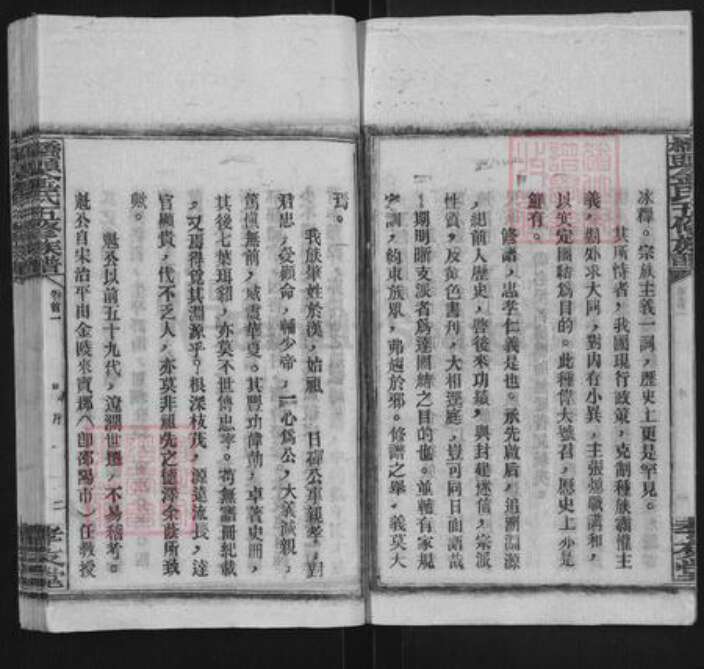 冰釋。宗族主義一詞，歷史上更是罕見。
其所恃者，我國現行政策，克制種族霸權主
義，對外求大同，對內存小異，主張熄戰講和，
以安定團結為目的。此種偉大號召，歷史上亦是
鮮有。
夫修譜，忠孝仁義是也。承先啟后，追溯淵源
，紹前人歷史，啓後來功績，與封建迷信，宗派
性質，及黃色書刊，大相逕庭，豈可同日而語哉
！期明晰支派者為達團結之目的也。並輔有家規
家訓，約束族眾，弗趨於邪。修譜之舉，義莫大
焉。
我族肇姓於漢，始祖 日磾公事親孝，對
君忠，受顧命，輔少帝，一心為公，大業滅親，
篤慎無前，威震華夏。其豐功偉勛，卓著史冊，
其後七葉珥貂，亦莫不世傳忠孝。苟無譜冊紀載
，又焉得覺其淵源乎？根深枝茂，源遠流長，達
官顯貴，代不乏人，亦莫非祖先之德澤余蔭所致
歟。
魁公以前五十九代，遼濶世遠，不易稽考。
魁公自宋治平由金陵來寶郡（即邵陽市）任教授
金氏五修族譜
卷首一
序
二
孝友堂